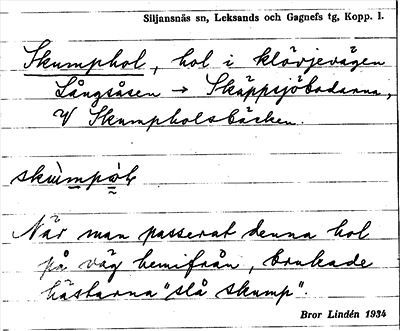 Siljansnäs sn, Leksands och Gagnefs tg, Kopp. l.
Skumphol, hol i klövjevägen
Långåsen → Skäppsjöbodarna,
V Skumpholsbäcken.
När man passerat denna hol
på väg hemifrån, brukade
hästarna "slå skump".
Bror Lindén 1934